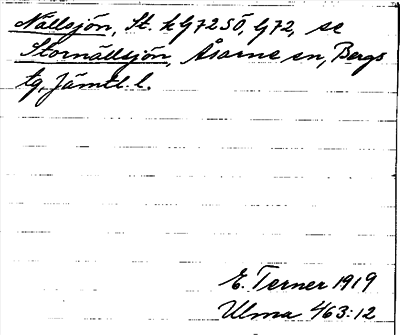 Nällsjön, St. k G72SÖ, G72, se
Stornällsjön, Åsarne sn, Bergs
tg, Jämtl. l.
E. Terner 1919
Ulma 463:12